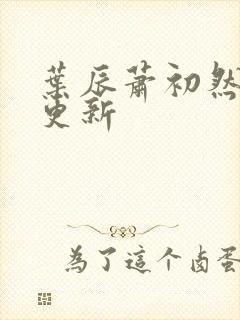 葉辰蕭初然
更新
為了這个鹵蛋